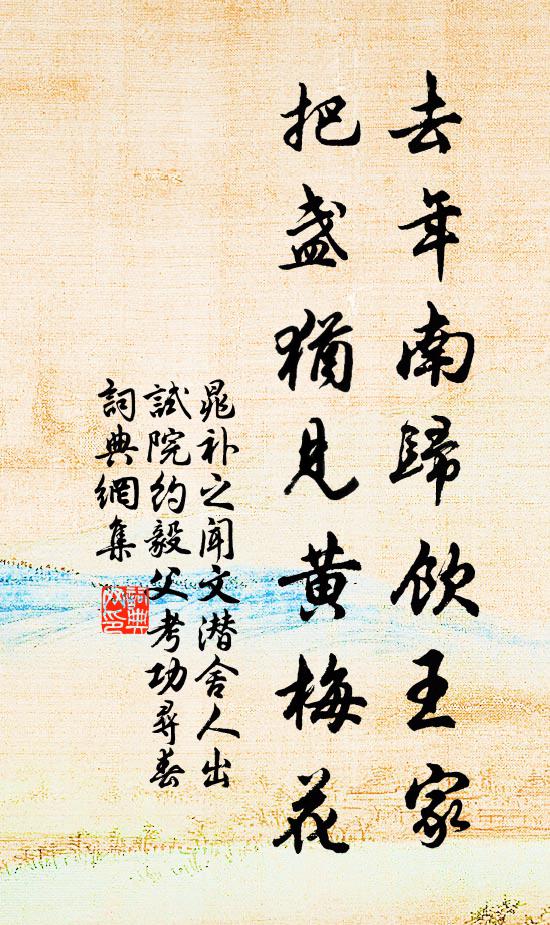 去年南歸飲王家
把盞猶見黃梅花
晁补之闻文潛舍人出
試院約毅父考功尋春
詞典網集